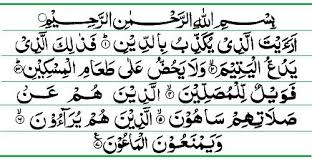 بِسْمِ اللهِ الرَّحْمٰنِ الرَّحِيْمِ
اَرَءَيْتَ الَّذِىْ يُكَذِّبُ بِالدِّيْنِ ۝١ فَذٰلِكَ الَّذِىْ
يَدُعُّ الْيَتِيْمَ ۝٢ وَلَا يَحُضُّ عَلٰى طَعَامِ الْمِسْكِيْنِ ۝٣
فَوَيْلٌ لِّلْمُصَلِّيْنَ ۝٤ الَّذِيْنَ هُمْ عَنْ
صَلَاتِهِمْ سَاهُوْنَ ۝٥ الَّذِيْنَ هُمْ يُرَآءُوْنَ ۝٦
وَيَمْنَعُوْنَ الْمَاعُوْنَ ۝٧